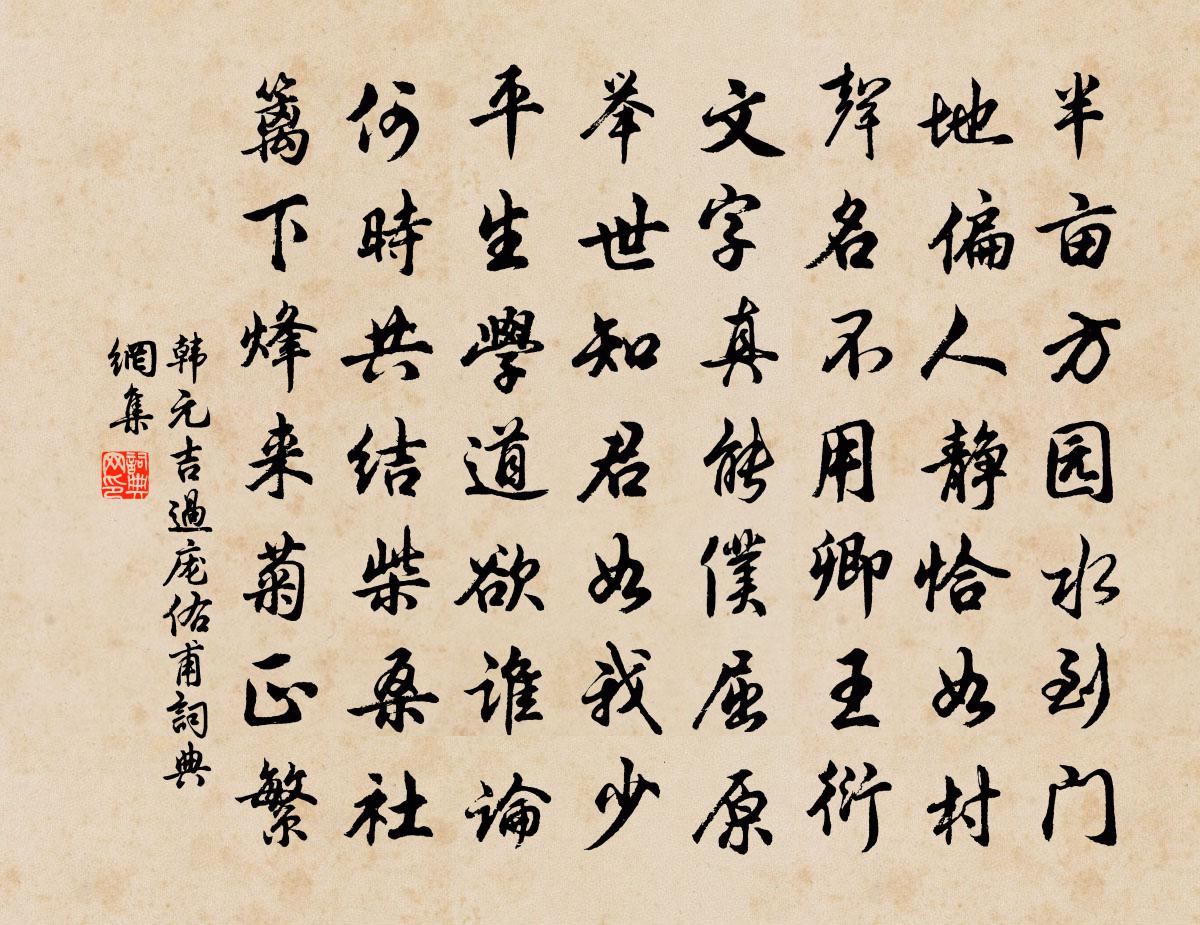 半亩方园水到门
地偏人静恰如村
聲名不用卿王衍
文字真能僕屈原
举世知君如我少
平生學道欲谁論
何時共结柴桑社
篱下烽来菊正繁
韩元吉過庞佑甫詞典
網集
詞典网印